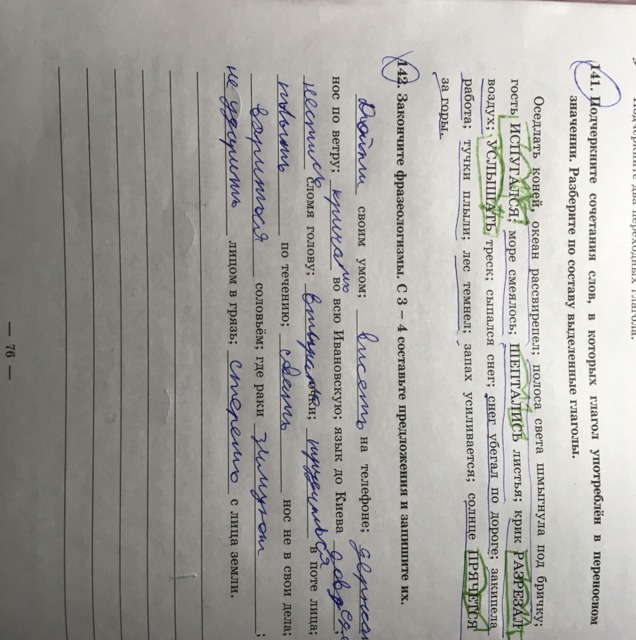 141. Подчеркните сочетания слов, в которых глагол употреблён в переносном
значении. Разберите по составу выделенные глаголы.
Оседлать коней, океан рассвирепел; полоса света шмыгнула под бричку;
гость ИСПУГАЛСЯ; море смеялось; ШЕПТАЛИСЬ листья; крик РАЗРЕЗАЛ
воздух; УСЛЫШАТЬ треск; сыпался снег; снег убегал по дороге; закипела
работа; тучки плыли; лес темнел; запах усиливается; солнце ПРЯЧЕТСЯ
за горы.
142. Закончите фразеологизмы. С 3 – 4 составьте предложения и запишите их.
Дойти своим умом; висеть на телефоне; держать
нос по ветру; кричать во всю Ивановскую; язык до Киева доведёт;
нестись сломя голову; втирать очки; трудиться в поте лица;
плыть по течению; совать нос не в свои дела;
заливаться соловьём; где раки зимуют;
не ударить лицом в грязь; стереть с лица земли.
— 76 —